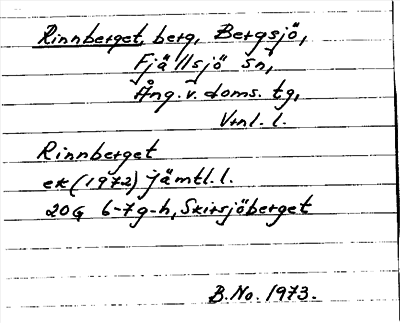 Rinnberget, berg, Bergsjö,
Fjällsjö sn,
Ång. v. doms. tg,
Vrnl. l.
Rinnberget
ek (1972) Jämtl. l.
20G 6-7g-h, Skirsjöberget
B.No. 1973.